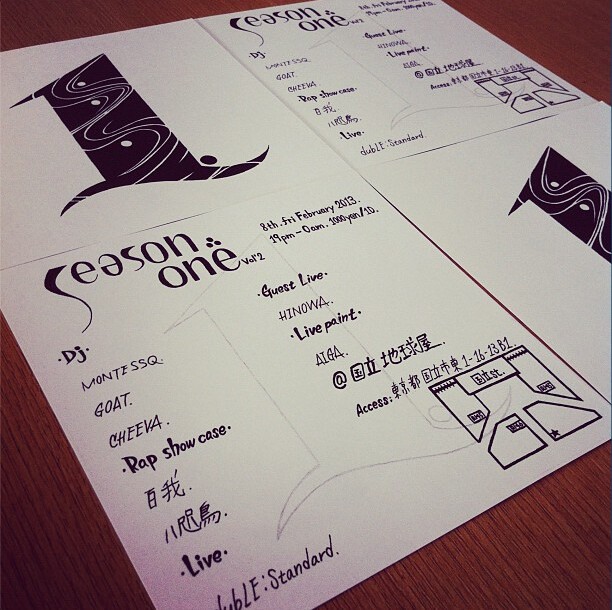 season
one Vol'2
8th.fri February 2013.
19pm-0am. 1000yen/1D.
·Dj·
MONTESSQ.
GOAT.
CHEEVA.
·Rap show case·
百我.
八咫烏.
·Live·
dubLE:Standard.
·Guest Live·
HINOWA.
·Live paint·
AIGA.
@国立地球屋.
Access:東京都国立市東1-16-13B1.
国立st.
season
one Vol'2
8th.fri February 2013.
19pm-0am. 1000yen/1D.
·Dj·
MONTESSQ.
GOAT.
CHEEVA.
·Rap show case·
百我.
八咫烏.
·Live·
dubLE:Standard.
Guest Live·
HINOWA.
·Live paint·
AIGA.
@国立地球屋
Access:東京都国立市東1-16-13B1